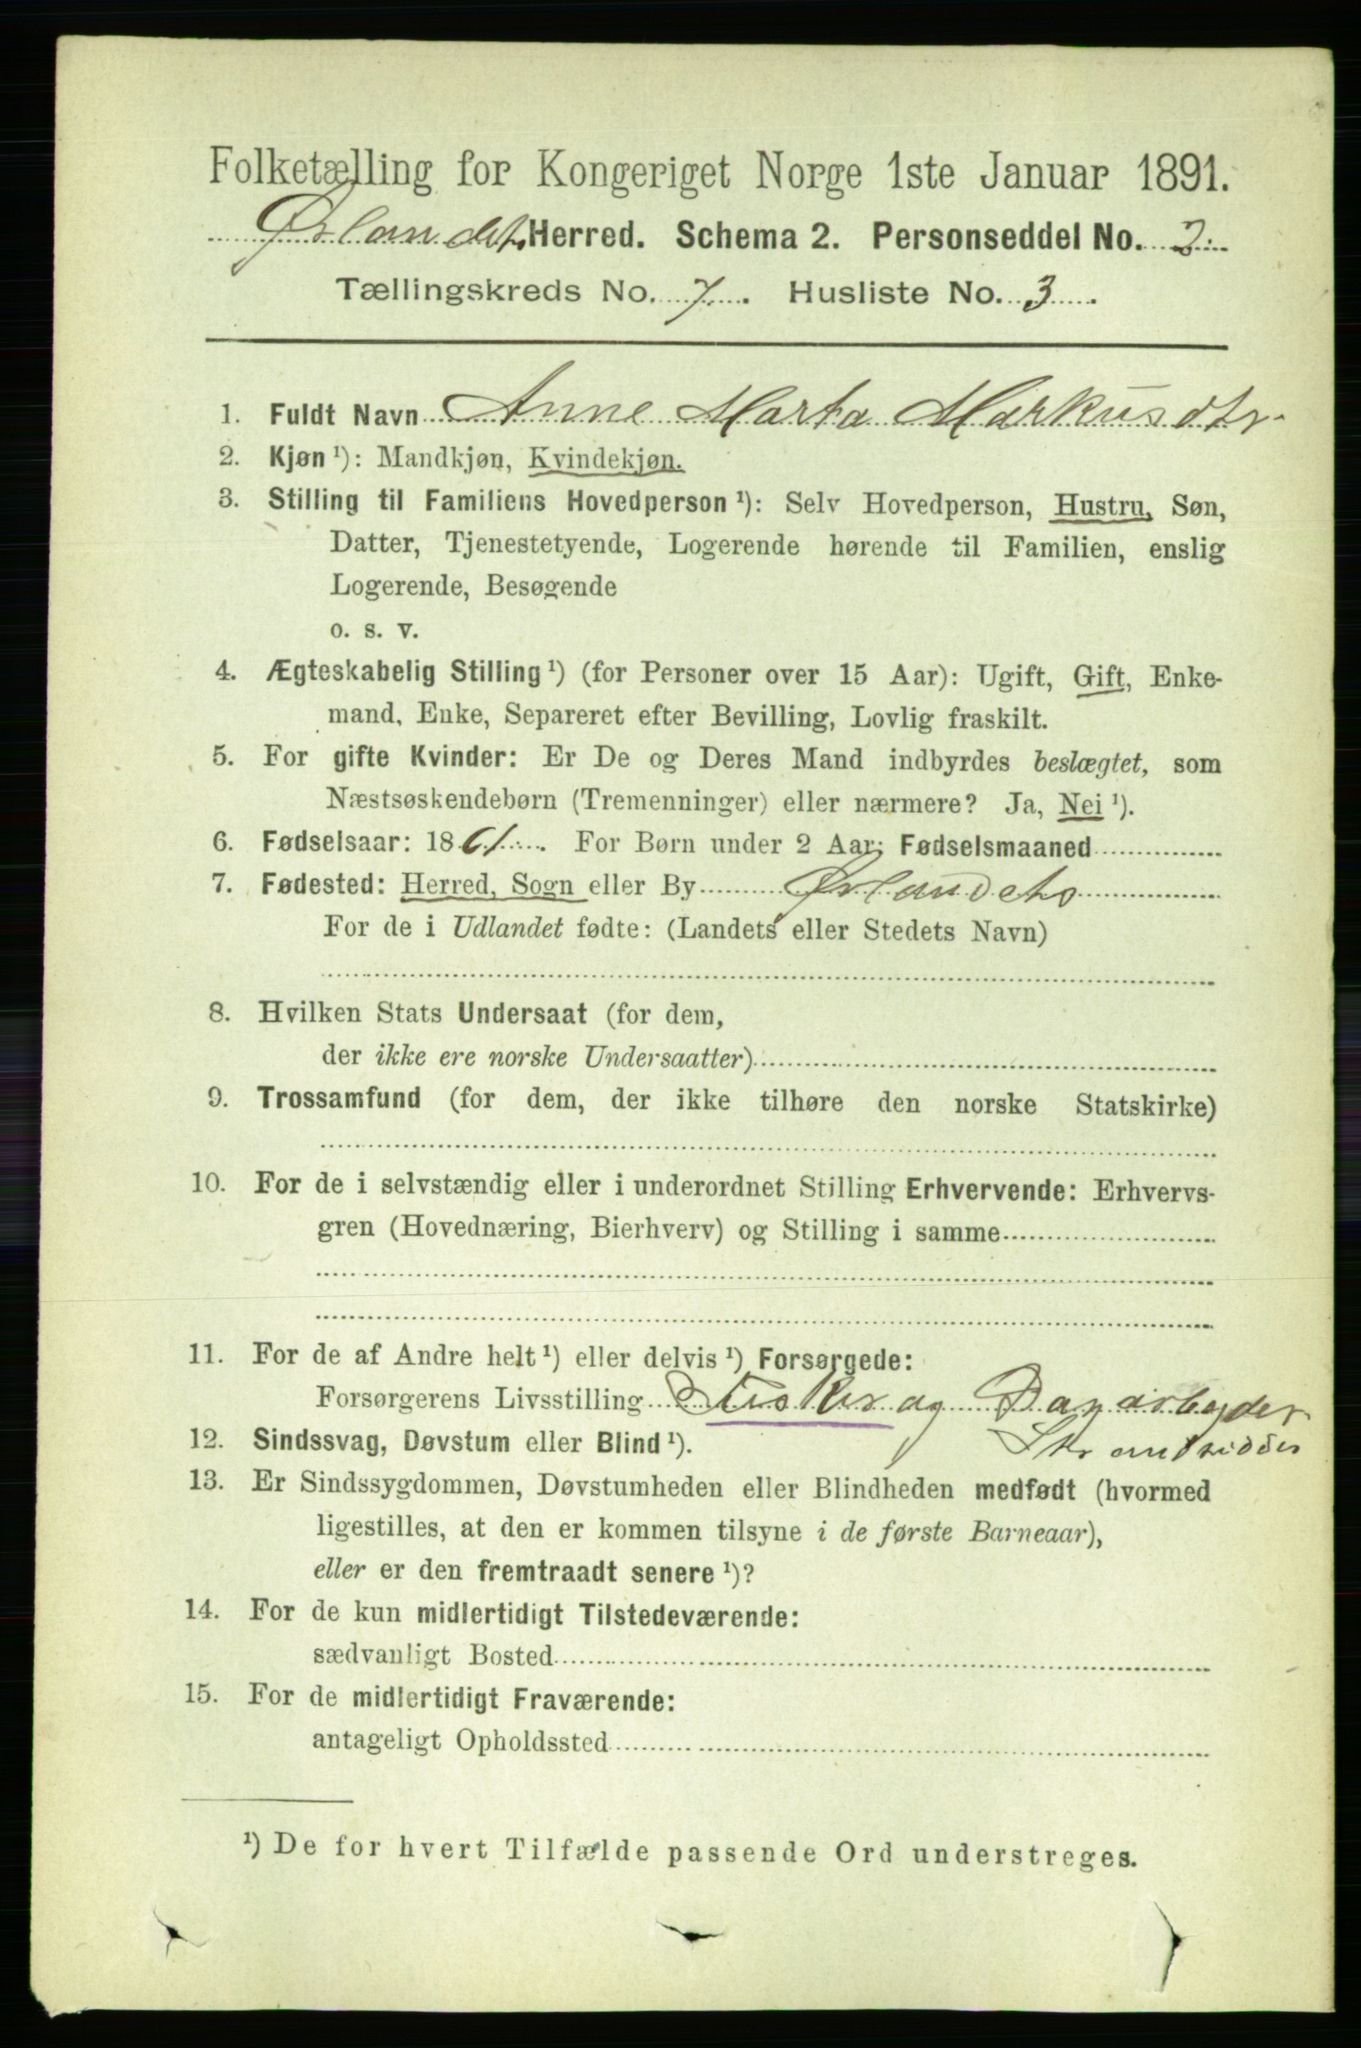 Folketælling for Kongeriget Norge 1ste Januar 1891.
Ørlandets Herred. Schema 2. Personseddel No. 2.
Tællingskreds No. 7. Husliste No. 3.
1. Fuldt Navn Anne Marta Markusdtr
2. Kjøn ¹): Mandkjøn, Kvindekjøn.
3. Stilling til Familiens Hovedperson ¹): Selv Hovedperson, Hustru, Søn,
Datter, Tjenestetyende, Logerende hørende til Familien, enslig
Logerende, Besøgende
o. s. v.
4. Ægteskabelig Stilling ¹) (for Personer over 15 Aar): Ugift, Gift, Enke-
mand, Enke, Separeret efter Bevilling, Lovlig fraskilt.
5. For gifte Kvinder: Er De og Deres Mand indbyrdes beslægtet, som
Næstsøskendebørn (Tremenninger) eller nærmere? Ja, Nei ¹).
6. Fødselsaar: 1861. For Børn under 2 Aar: Fødselsmaaned
7. Fødested: Herred, Sogn eller By Ørlandets
For de i Udlandet fødte: (Landets eller Stedets Navn)
8. Hvilken Stats Undersaat (for dem,
der ikke ere norske Undersaatter)
9. Trossamfund (for dem, der ikke tilhøre den norske Statskirke)
10. For de i selvstændig eller i underordnet Stilling Erhvervende: Erhvervs-
gren (Hovednæring, Bierhverv) og Stilling i samme
11. For de af Andre helt ¹) eller delvis ¹) Forsørgede:
Forsørgerens Livsstilling Fisker og Dagarbeyder
Strandsidder
12. Sindssvag, Døvstum eller Blind ¹).
13. Er Sindssygdommen, Døvstumheden eller Blindheden medfødt (hvormed
ligestilles, at den er kommen tilsyne i de første Barneaar),
eller er den fremtraadt senere ¹)?
14. For de kun midlertidigt Tilstedeværende:
sædvanligt Bosted
15. For de midlertidigt Fraværende:
antageligt Opholdssted
¹) De for hvert Tilfælde passende Ord understreges.